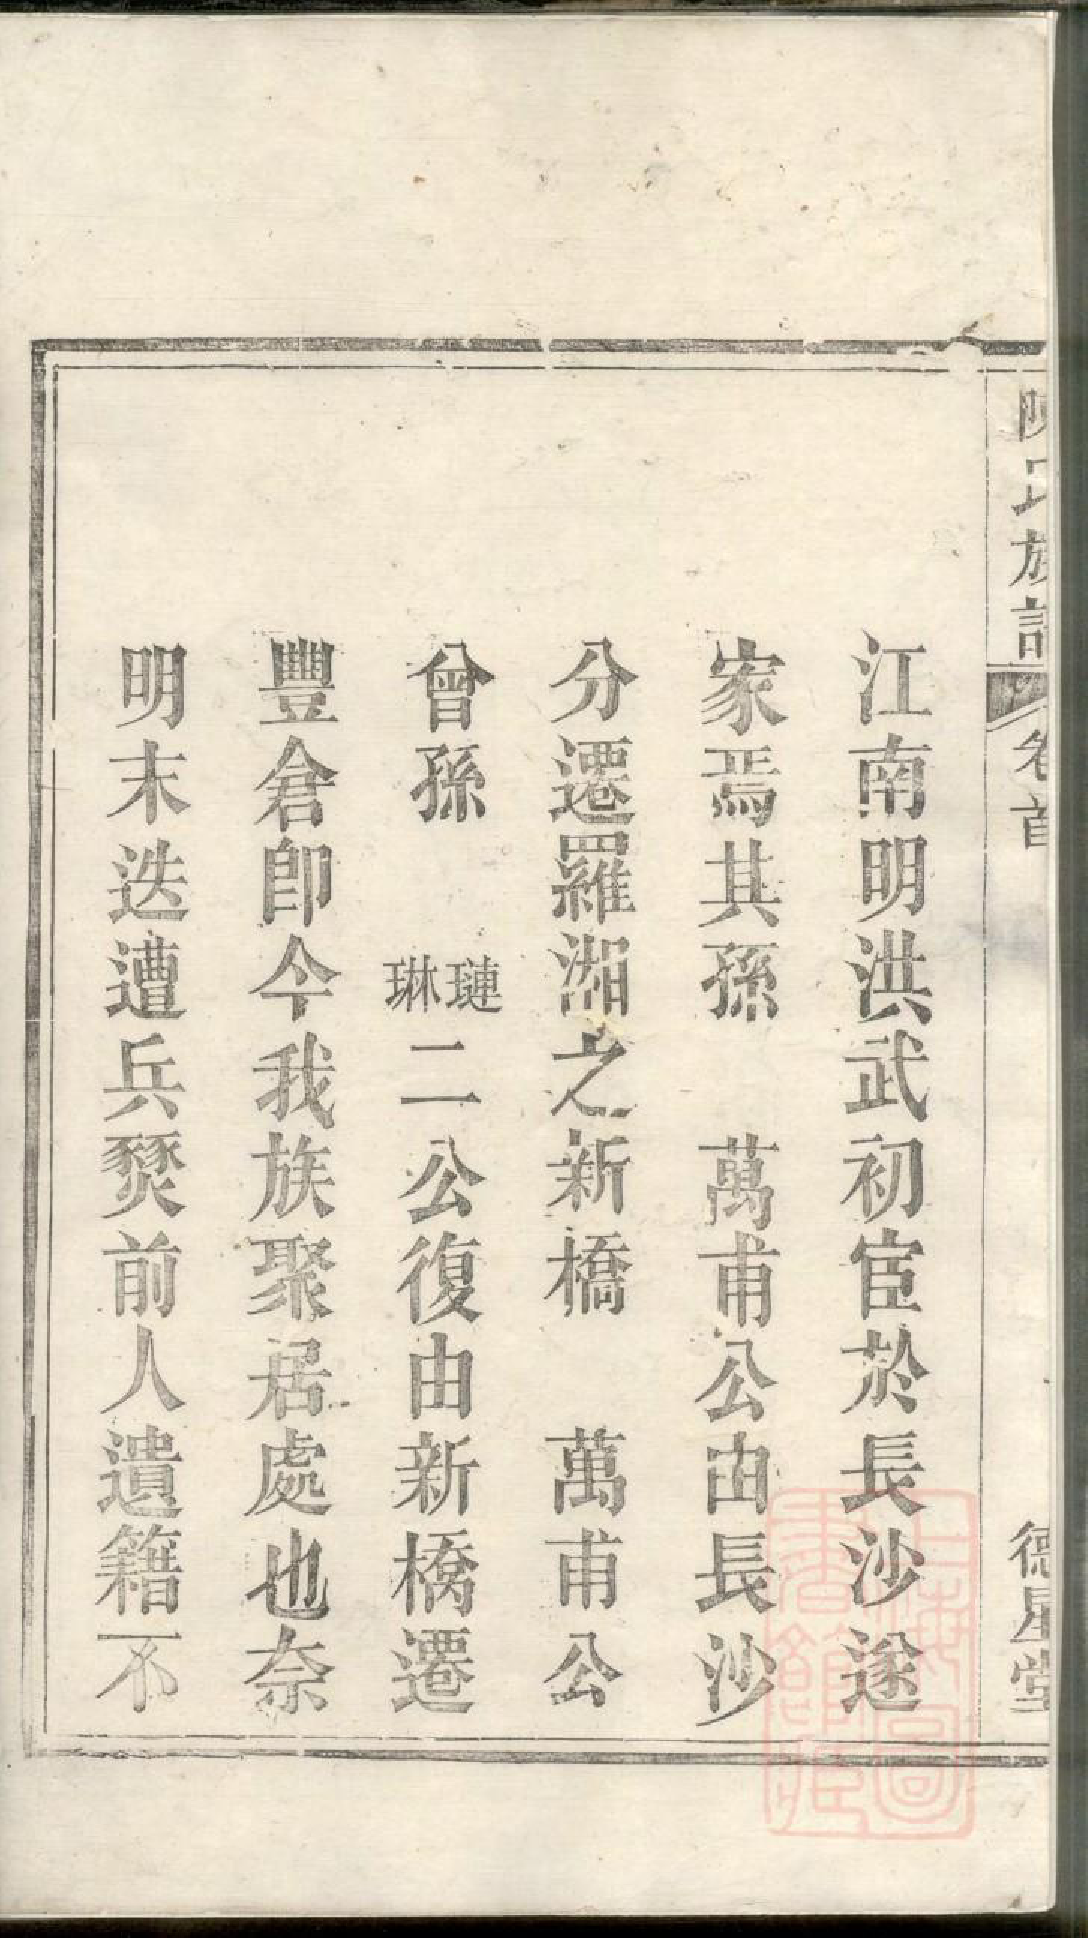 陳氏族譜
卷首
德星堂
江南明洪武初宦於長沙遂
家焉其孫　萬甫公由長沙
分遷羅湘之新橋　萬甫公
曾孫　璉琳二公復由新橋遷
豐倉卽今我族聚居處也奈
明末迭遭兵燹前人遺籍不
上海圖書館藏